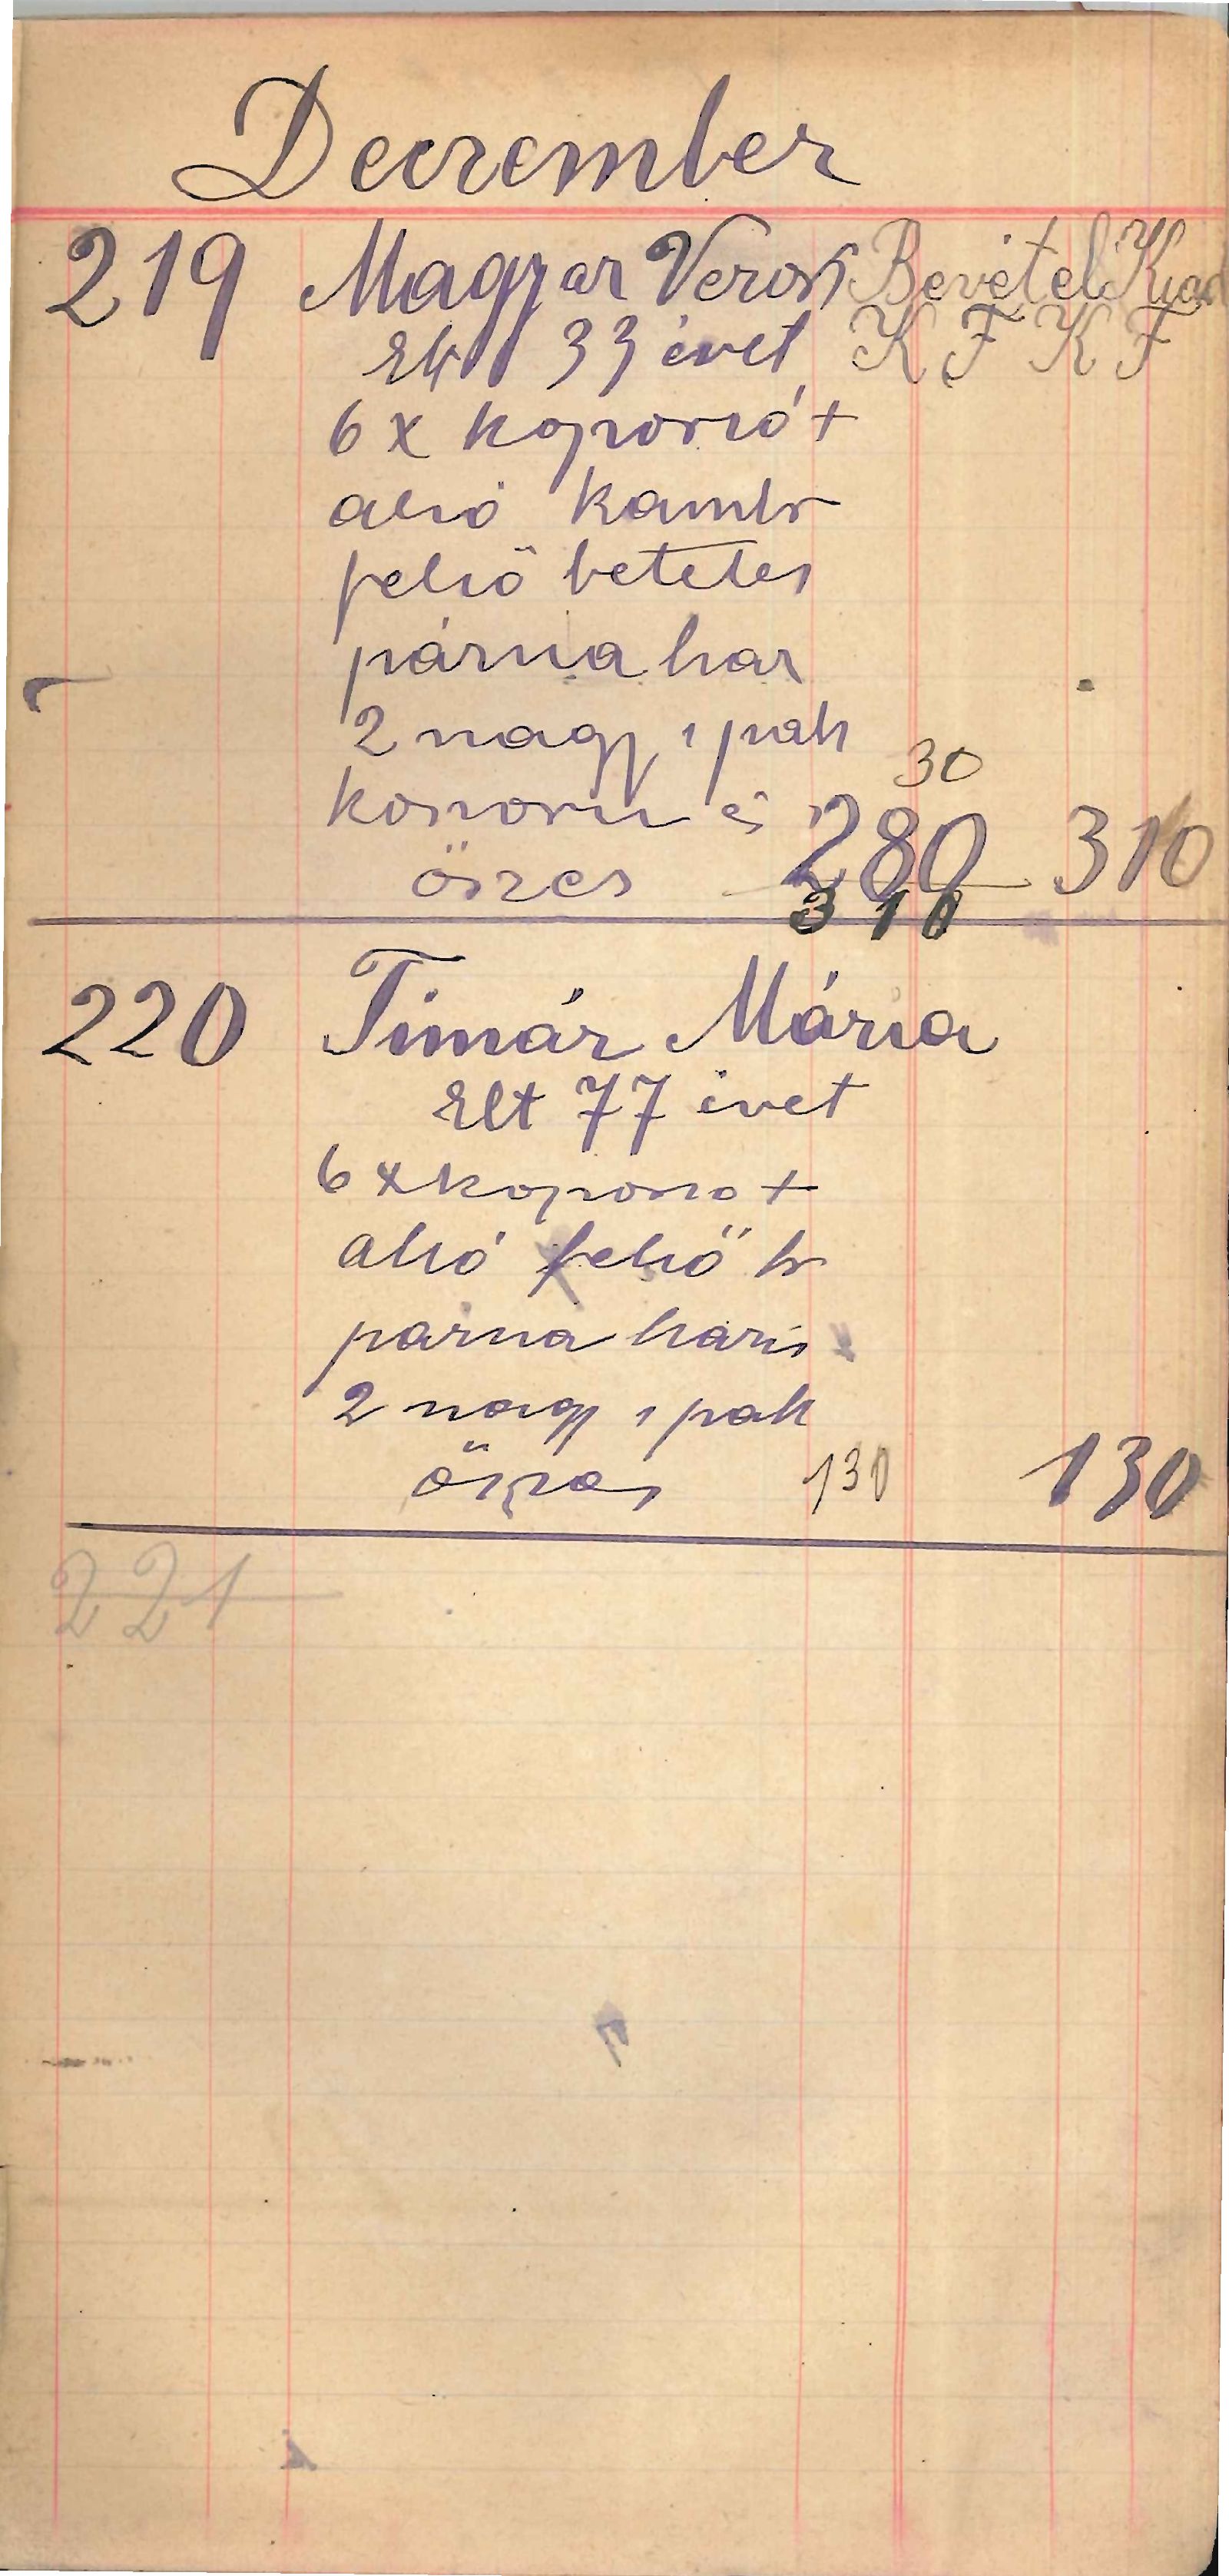 Deczember
219 Magyar Veron Bevétel Kiad
Elt 33 évet K F K F
6 x koporsó +
alsó kamb
felső betétes
párna har
2 nagy 1 pak
30
koszoru és 280 310
öszes
310
220 Timár Mária
Elt 77 évet
6 x koporso +
alsó felső b
párna haris
2 nagy 1 pak
öszes 130 130
221